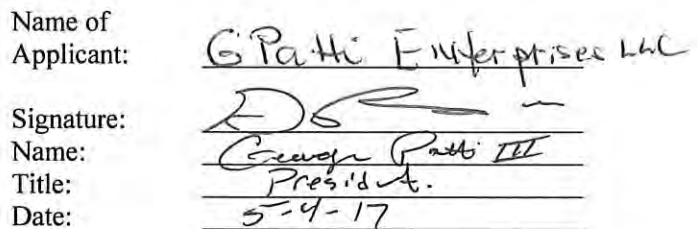 Name of
Applicant: G Patti Enterprises LLC
Signature:
Name: George Patti III
Title: President.
Date: 5-4-17